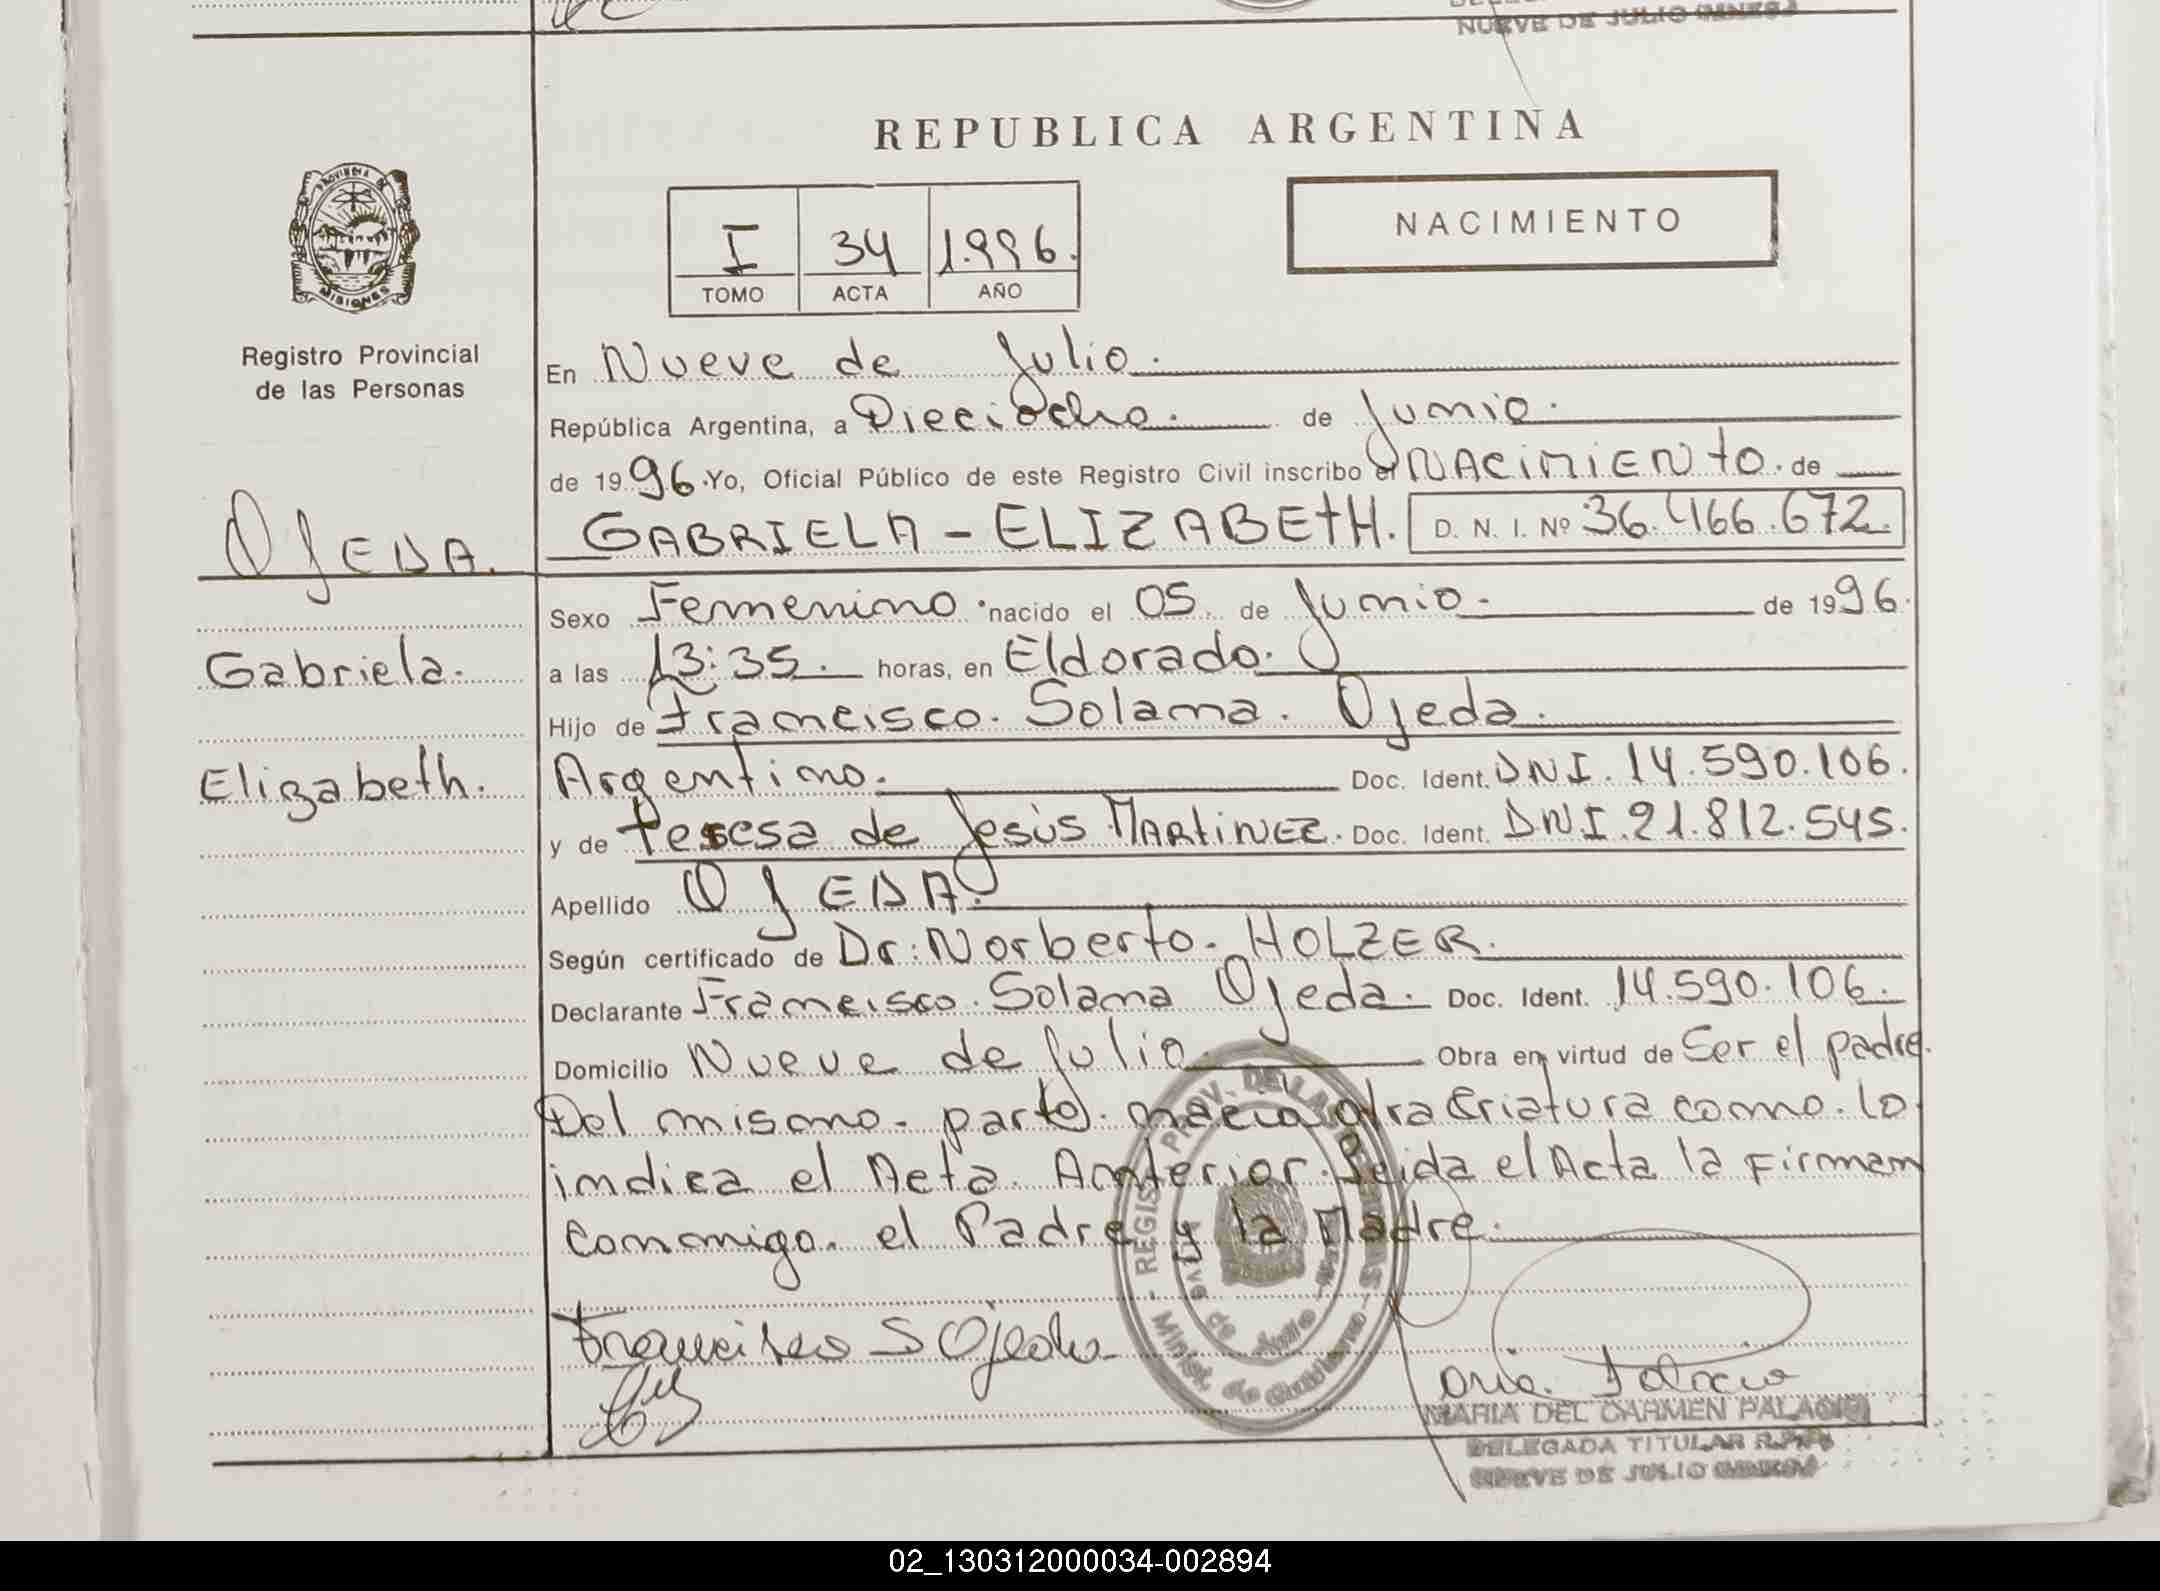 NUEVE DE JULIO
REPUBLICA ARGENTINA
PROVINCIA DE
MISIONES
Registro Provincial
de las Personas
I 34 1.996.
TOMO ACTA AÑO
NACIMIENTO
En Nueve de Julio.
República Argentina, a Dieciocho. de Junio.
de 1996. Yo, Oficial Público de este Registro Civil inscribo el NACIMIENTO. de
OJEDA. GABRIELA - ELIZABETH. D. N. I. Nº 36.466.672.
Sexo Femenino. nacido el 05. de Junio. de 1996.
Gabriela. a las 13:35. horas, en Eldorado.
Hijo de Francisco. Solana. Ojeda.
Elizabeth. Argentino. Doc. Ident. DNI. 14.590.106.
y de Teresa de Jesús MARTINEZ. Doc. Ident. DNI. 21.812.545.
Apellido OJEDA.
Según certificado de Dr: Norberto. HOLZER.
Declarante Francisco. Solana Ojeda. Doc. Ident. 14.590.106.
Domicilio Nueve de Julio. Obra en virtud de Ser el padre.
Del mismo. parto. nacio otra Criatura como. lo
indica el Acta. Anterior. Leida el Acta la Firman
Conmigo. el Padre y la Madre.
Francisco S Ojeda
MARIA DEL CARMEN PALACIO
DELEGADA TITULAR
NUEVE DE JULIO
02_130312000034-002894